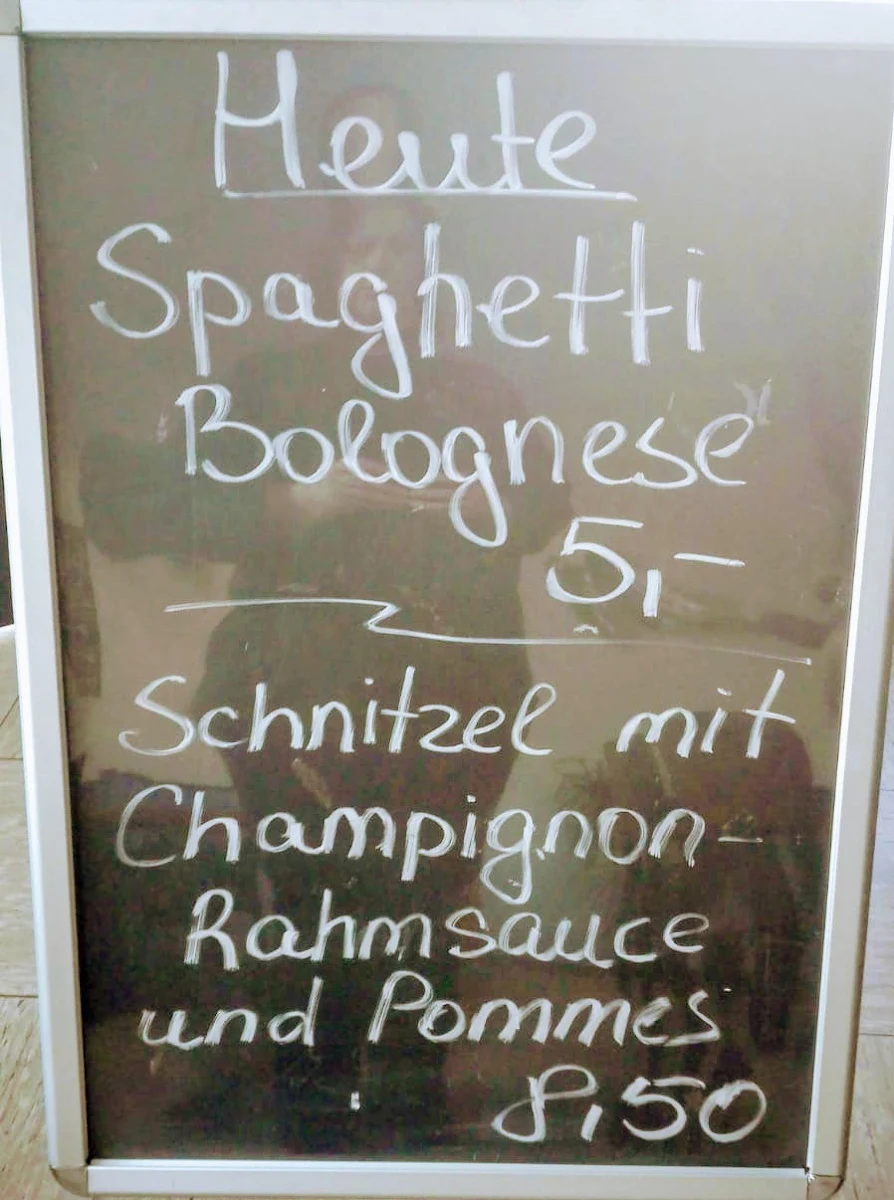 Heute
Spaghetti
Bolognese
5,-
Schnitzel mit
Champignon-
Rahmsauce
und Pommes
8,50